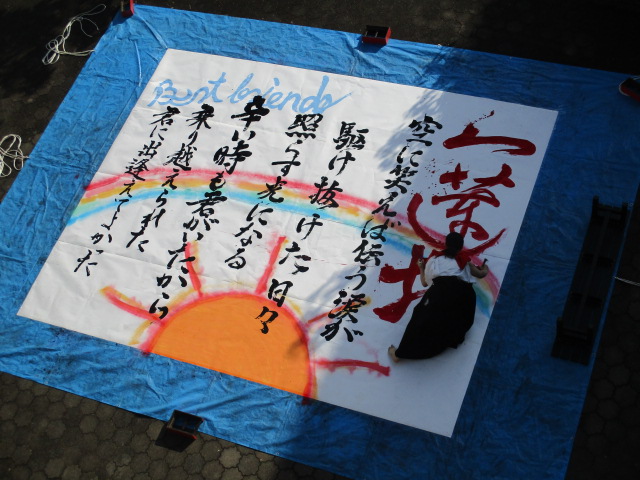 一蓮托
空に笑えば伝う涙が
駆け抜けた日々
照らす光になる
辛い時も君がいたから
乗り越えられた
君に出逢えてよかった
Best friends